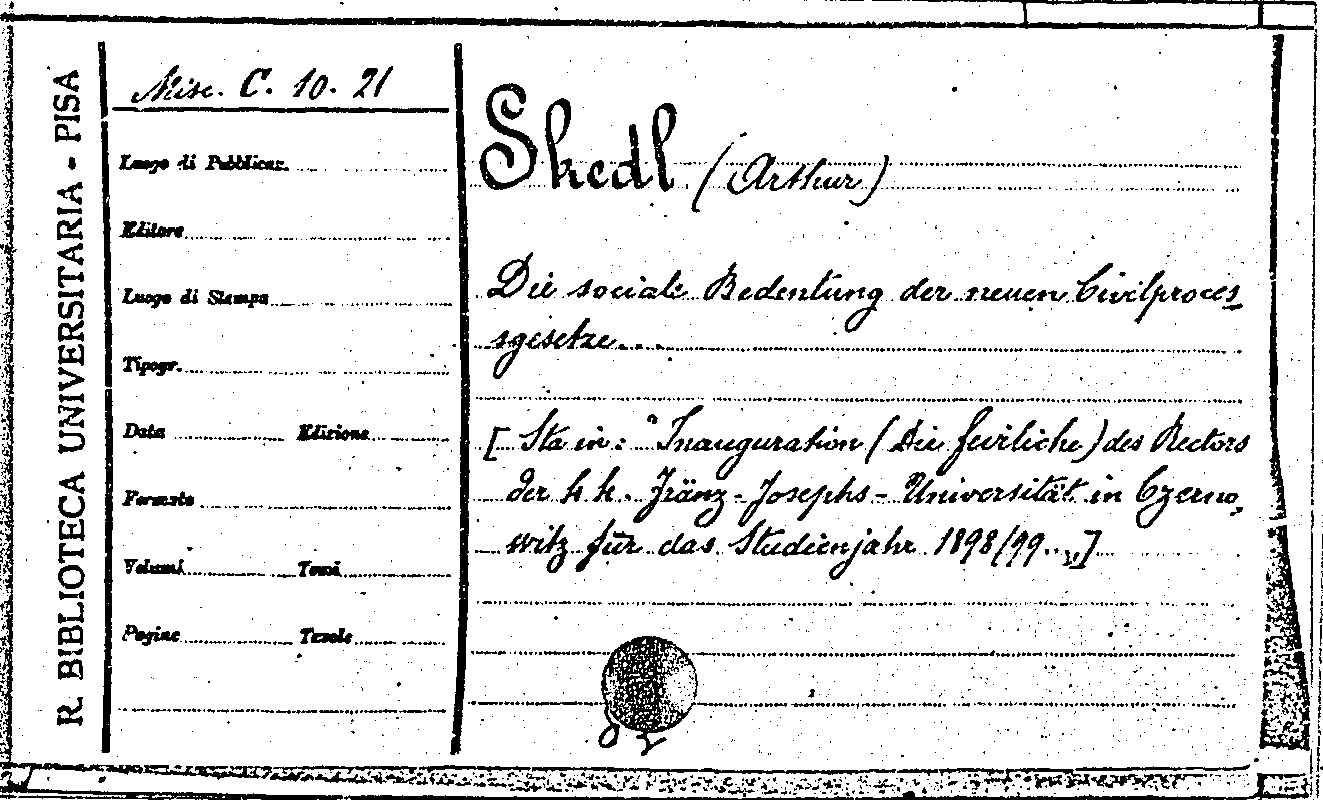 R. BIBLIOTECA UNIVERSITARIA - PISA
Misc. C. 10. 21
Luogo di Pubblicaz.
Editore
Luogo di Stampa
Tipogr.
Data Edizione
Formato
Volumi Tomi
Pagine Tavole
Skedl (Arthur)
Die sociale Bedentung der neuen Civilproces
sgesetze...
[Sta in: "Inauguration (Die feirliche) des Rectors
der k k. Fränz-Josephs-Universität in Czerno,
witz für das Studienjahr 1898/99..„]